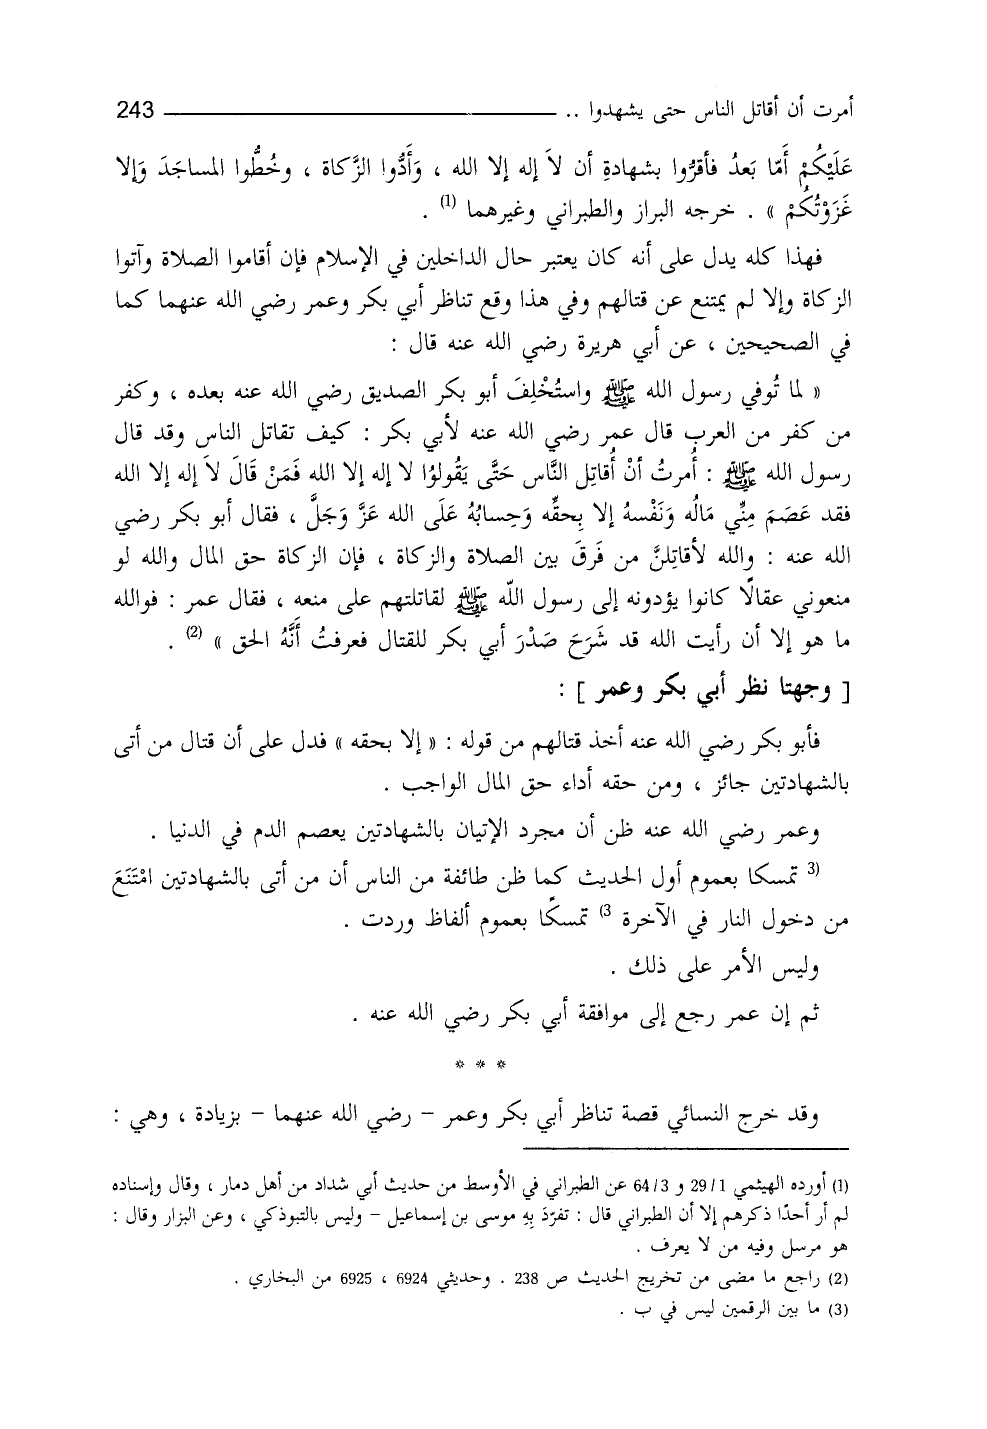 أمرت أن أقاتل الناس حتى يشهدوا .. 243
عَلَيْكُمْ أَمّا بَعدُ فأقرُّوا بشهادةِ أن لاَ إله إلا الله ، وَأَدُّوا الزَّكاة ، وخُطُّوا المساجَدَ وَإلا
غَزَوْتُكُمْ » . خرجه البراز والطبراني وغيرهما (1) .
فهذا كله يدل على أنه كان يعتبر حال الداخلين في الإسلام فإن أقاموا الصلاة وآتوا
الزكاة وإلا لم يمتنع عن قتالهم وفي هذا وقع تناظر أبي بكر وعمر رضي الله عنهما كما
في الصحيحين ، عن أبي هريرة رضي الله عنه قال :
« لما تُوفي رسول الله ﷺ واستُخْلِفَ أبو بكر الصديق رضي الله عنه بعده ، وكفر
من كفر من العرب قال عمر رضي الله عنه لأبي بكر : كيف تقاتل الناس وقد قال
رسول الله ﷺ : أُمرتُ أنْ أُقاتِل النَّاس حَتَّى يَقُولوُا لا إله إلا الله فَمَنْ قَالَ لاَ إله إلا الله
فقد عَصَمَ مِنِّي مَالُه وَنَفْسهُ إلا بِحقِّه وَحِسابُهُ عَلَى الله عَزَّ وَجَلَّ ، فقال أبو بكر رضي
الله عنه : والله لأقاتِلنَّ من فَرقَ بين الصلاة والزكاة ، فإن الزكاة حق المال والله لو
منعوني عقالًا كانوا يؤدونه إلى رسول اللّه ﷺ لقاتلتهم على منعه ، فقال عمر : فوالله
ما هو إلا أن رأيت الله قد شَرَحَ صَدْرَ أبي بكر للقتال فعرفتُ أنَّهُ الحق » (2) .
[ وجهتا نظر أبي بكر وعمر ] :
فأبو بكر رضي الله عنه أخذ قتالهم من قوله : « إلا بحقه » فدل على أن قتال من أتى
بالشهادتين جائز ، ومن حقه أداء حق المال الواجب .
وعمر رضي الله عنه ظن أن مجرد الإتيان بالشهادتين يعصم الدم في الدنيا .
(3 تمسكا بعموم أول الحديث كما ظن طائفة من الناس أن من أتى بالشهادتين امْتَنَعَ
من دخول النار في الآخرة 3) تمسكًا بعموم ألفاظ وردت .
وليس الأمر على ذلك .
ثم إن عمر رجع إلى موافقة أبي بكر رضي الله عنه .
* * *
وقد خرج النسائي قصة تناظر أبي بكر وعمر – رضي الله عنهما – بزيادة ، وهي :
(1) أورده الهيثمي 29/1 و 64/3 عن الطبراني في الأوسط من حديث أبي شداد من أهل دمار ، وقال وإسناده
لم أر أحدًا ذكرهم إلا أن الطبراني قال : تفرّدَ بِهِ موسى بن إسماعيل – وليس بالتبوذكي ، وعن البزار وقال :
هو مرسل وفيه من لا يعرف .
(2) راجع ما مضى من تخريج الحديث ص 238 . وحديثي 6924 ، 6925 من البخاري .
(3) ما بين الرقمين ليس في ب .